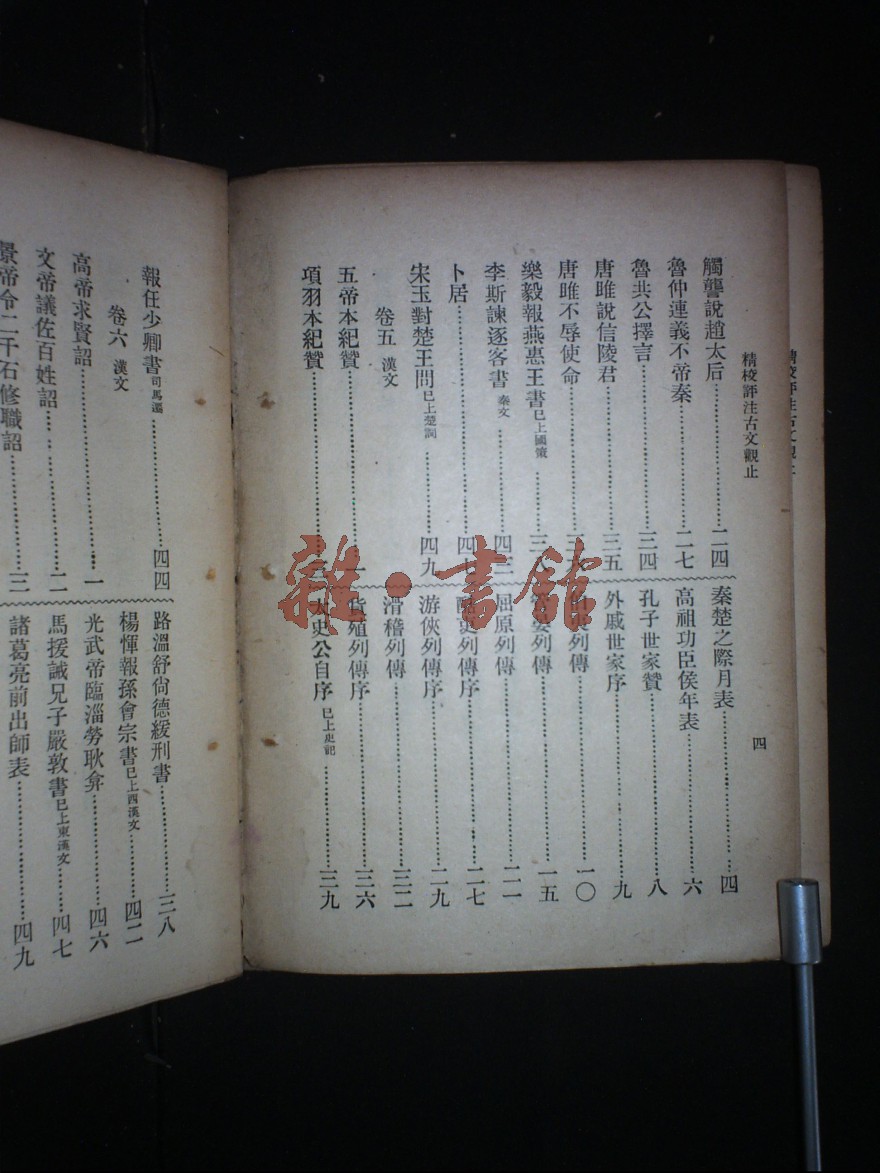 精校評注古文觀止
四
觸讋說趙太后 二四
魯仲連義不帝秦 二七
魯共公擇言 三四
唐雎說信陵君 三五
唐雎不辱使命
樂毅報燕惠王書 已上國策 三八
李斯諫逐客書 秦文 四三
卜居
宋玉對楚王問 已上楚詞 四九
卷五 漢文
五帝本紀贊 一
項羽本紀贊
秦楚之際月表 四
高祖功臣侯年表 六
孔子世家贊 八
外戚世家序 九
列傳 一〇
列傳 一五
屈原列傳 二一
酷吏列傳序 二七
游俠列傳序 二九
滑稽列傳 三二
貨殖列傳序 三六
太史公自序 已上史記 三九
報任少卿書 司馬遷 四四
卷六 漢文
高帝求賢詔 一
文帝議佐百姓詔 二
景帝令二千石修職詔 三
路溫舒尙德緩刑書 三八
楊惲報孫會宗書 已上西漢文 四二
光武帝臨淄勞耿弇 四六
馬援誡兄子嚴敦書 已上東漢文 四七
諸葛亮前出師表 四九
雜·書館